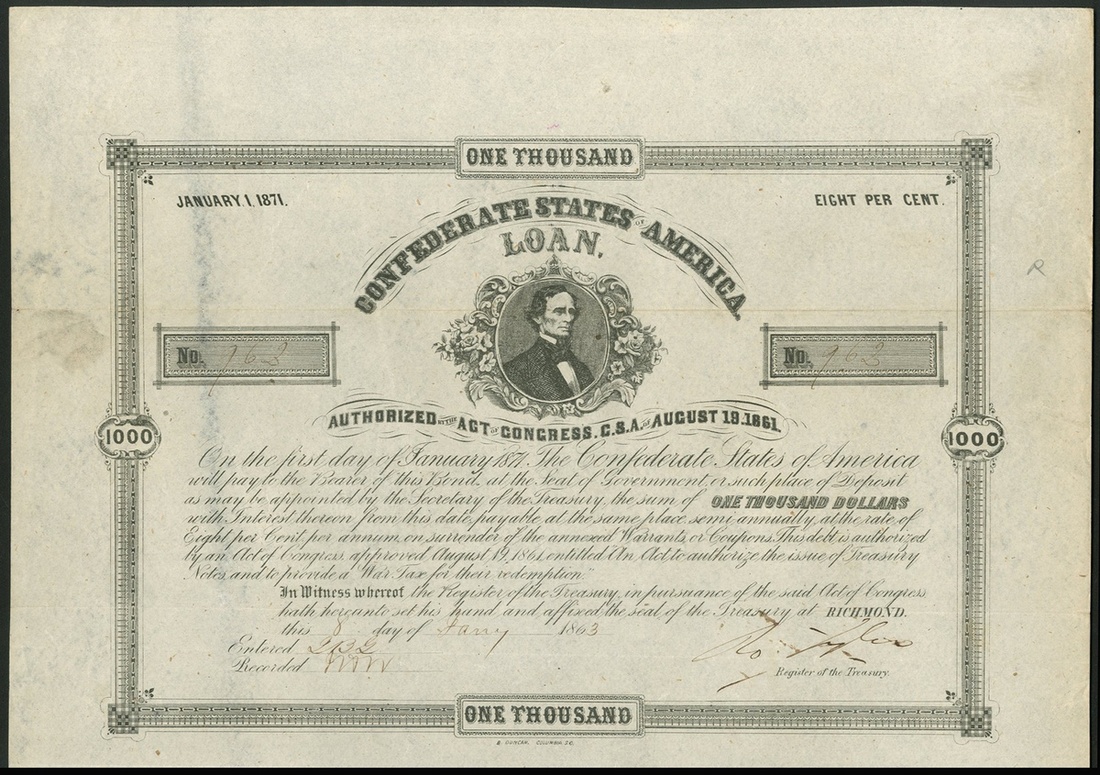 ONE THOUSAND
JANUARY. 1. 1871.
EIGHT PER CENT.
CONFEDERATE STATES OF AMERICA.
LOAN.
No. 963
No. 963
AUTHORIZED BY THE ACT OF CONGRESS. C.S.A. OF AUGUST 19. 1861.
1000
1000
On the first day of January 1871, The Confederate States of America
will pay to the Bearer of this Bond, at the Seat of Government, or such place of Deposit
as may be appointed by the Secretary of the Treasury, the sum of ONE THOUSAND DOLLARS
with Interest thereon from this date, payable at the same place, semi-annually, at the rate of
Eight per Cent per annum, on surrender of the annexed Warrants, or Coupons. This debt is authorized
by an Act of Congress, approved August 19, 1861, entitled "An Act to authorize the issue of Treasury
Notes, and to provide a War Tax for their redemption."
In Witness whereof the Register of the Treasury, in pursuance of the said Act of Congress
hath hereunto set his hand and affixed the seal of the Treasury at RICHMOND.
this 8 day of Jany 1863
Entered
Recorded
Ro. Tyler
Register of the Treasury.
ONE THOUSAND
B. DUNCAN, COLUMBIA S.C.
R